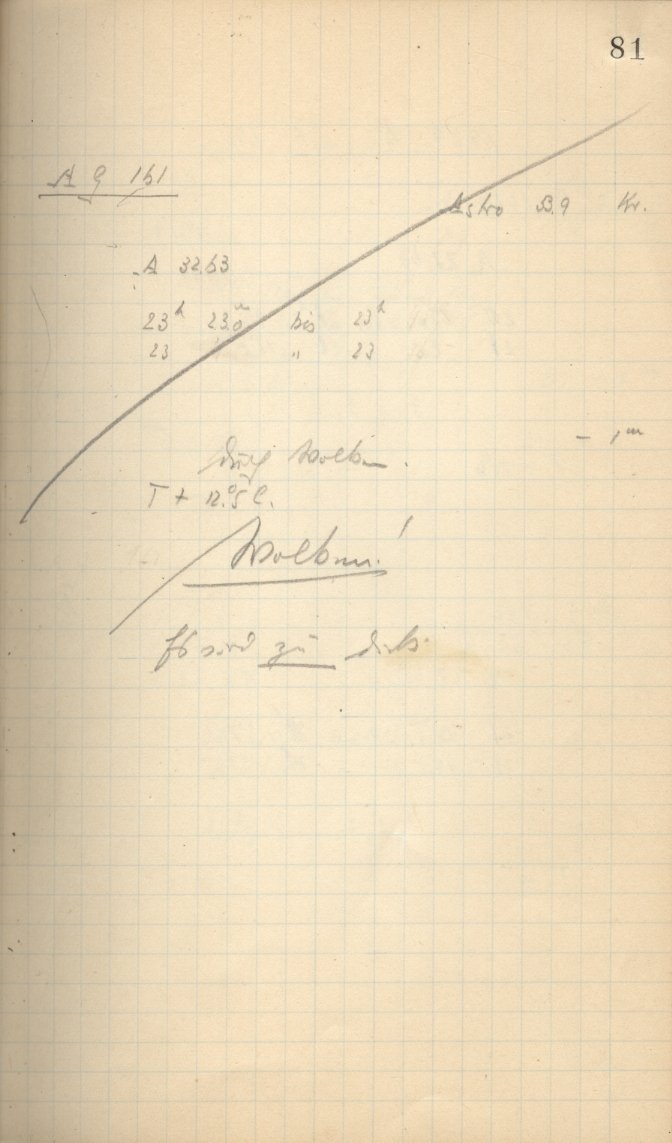 81
A G 161
Astro B.9 Kr.
A 3263
23h 23.0m bis 23h
23 " 23
durch Wolken.
T + 12.°5 C.
Wolken!
Es wird zu dick.